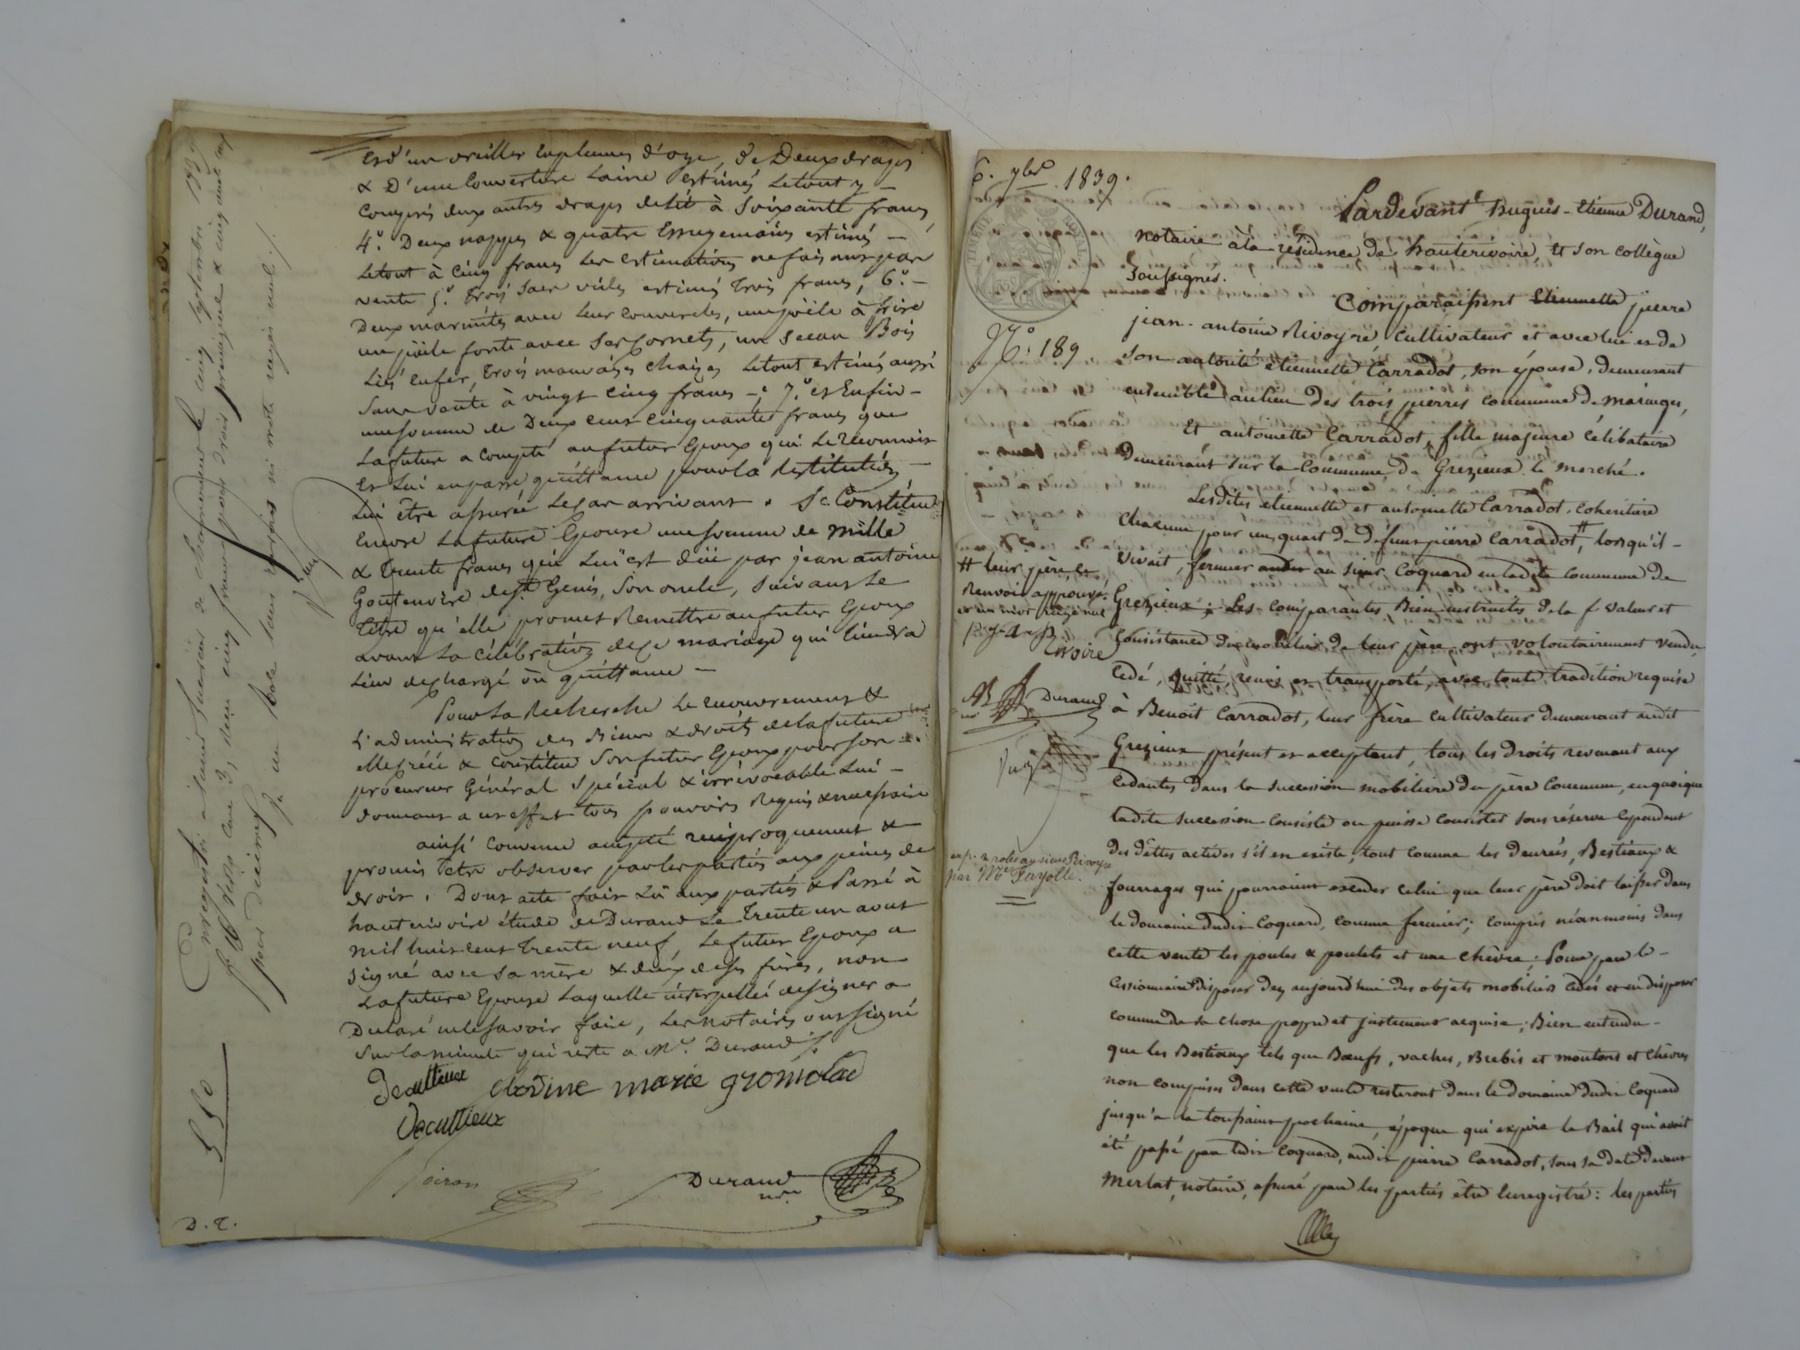 et d'un oreiller en plumes d'oye, de Deux draps
& D'une Couverture Laine estimés Le tout y —
Compris deux autres draps de lit à Soixante francs
4.° Deux nappes & quatre Essuyemains estimés —
Le tout à Cinq francs Les estimations ne fais ant pas
vente 5.° trois Sacs vides estimés trois francs, 6.° —
Deux marmites avec Leur Couvercles, une poële à frire
un poële fonte avec Ses Cornets, un Sceau Bois
Lié en fer, trois mauvaises Chaises Le tout estimé aussi
Sans vente à vingt Cinq francs —; 7.° et Enfin —
une somme de Deux cens Cinquante francs que
La future a compté au futur Epoux qui Le Reconnoit
et Lui en passe quittance pour La Restitution —
Lui être assurée Le Cas arrivant. Se Constitue
Encore La future Epouse une somme de mille
& trente francs qui Lui est düe par jean antoine
Goutenoire de St. Genis, Son oncle, Suivant Le
titre qu'elle promet Remettre au futur Epoux
avant La Célébration de Ce mariage qui tiendra
Lieu de chargé ou quittance —
Pour La Recherche Le recouvrement &
L'administration des Biens & droits de la future
elle Créé & Constitue Son futur Epoux pour Son
procureur Général Spécial & irrévocable Lui —
donnant a cet effet tous pouvoirs Requis & nécessaire
ainsi Convenu accepté réciproquement &
promis être observer par Les parties aux peines de
droit. Dont acte fait Lû aux parties & Passé à
hauterivoire étude de Durand Le trente un aout
mil huit cent trente neuf, Le futur Epoux a
signé avec Sa mère & deux de Ses frères, non
La future Epouse Laquelle interpellée de signer a
Déclaré ne le Savoir faire, Les notaires ont signé
Sur La minute qui reste a Me. Durand
Decultieux clodine marie gromolard
Decultieux
Poiron
Durand
nre
D. E.
5 50
6. 7bre 1839.
Pardevant Hugues-Etienne Durand,
notaire à la résidence de hauterivoire, et son collègue
Soussignés.
Comparaissent Etiennette pierre
N.° 189
jean-antoine Rivoyre Cultivateur et avec lui et de
son autorité étiennette Carradot, son épouse, demeurant
ensemble au lieu des trois pierres commune de maringes,
Et antoinette Carradot, fille majeure célibataire
demeurant sur la Commune de Grezieux le marché.
Lesdites etiennette et antoinette Carradot, Cohéritière
Chacune pour un quart de défunt pierre Carradot, # lorsqu'il —
vivait, fermier au Sieur Coquard en ladite commune de
# leur père, et
Renvoi approuvé
Rivoire
Durand
Grezieux; Les comparantes Bien instruites de la f valeur et
Consistance du mobilier de leur père ont volontairement vendu,
Cédé, quitté, remis et transporté, avec toute tradition requise
à Benoit Carradot, leur frère cultivateur demeurant audit
Grezieux présent et acceptant, tous les droits revenant aux
Cédantes dans la succession mobilière du père commun, en quoique
ladite succession Consiste ou puisse consister sous réserve Cependant
des dettes actives s'il en existe, tout comme les denrées, Bestiaux &
par Me Fayolle.
fourrages qui pourraient excéder celui que leur père doit laisser dans
le domaine dudit Coquard, comme fermier; compris néanmoins dans
cette vente les poules & poulets et une chèvre; Pour par le —
Cessionnaire disposer dez aujourd'hui des objets mobiliers cédés et en disposer
comme de sa chose propre et justement acquise; Bien entendu —
que les Bestiaux tels que Boeufs, vaches, Brebis et moutons et Chèvres
non comprises dans cette vente resteront dans le domaine dudit Coquard
jusqu'à la toussaint prochaine, époque qui expire le Bail qui avoit
été passé par ledit Coquard, audit pierre Carradot, sous sa date devant
Merlat, notaire, assuré par les parties être Enregistré: les parties